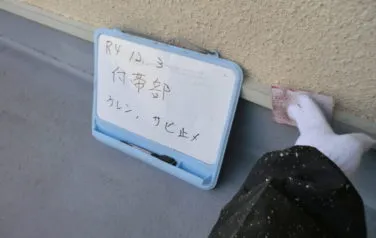 R4 12. 3
付帯部
ケレン、サビ止メ